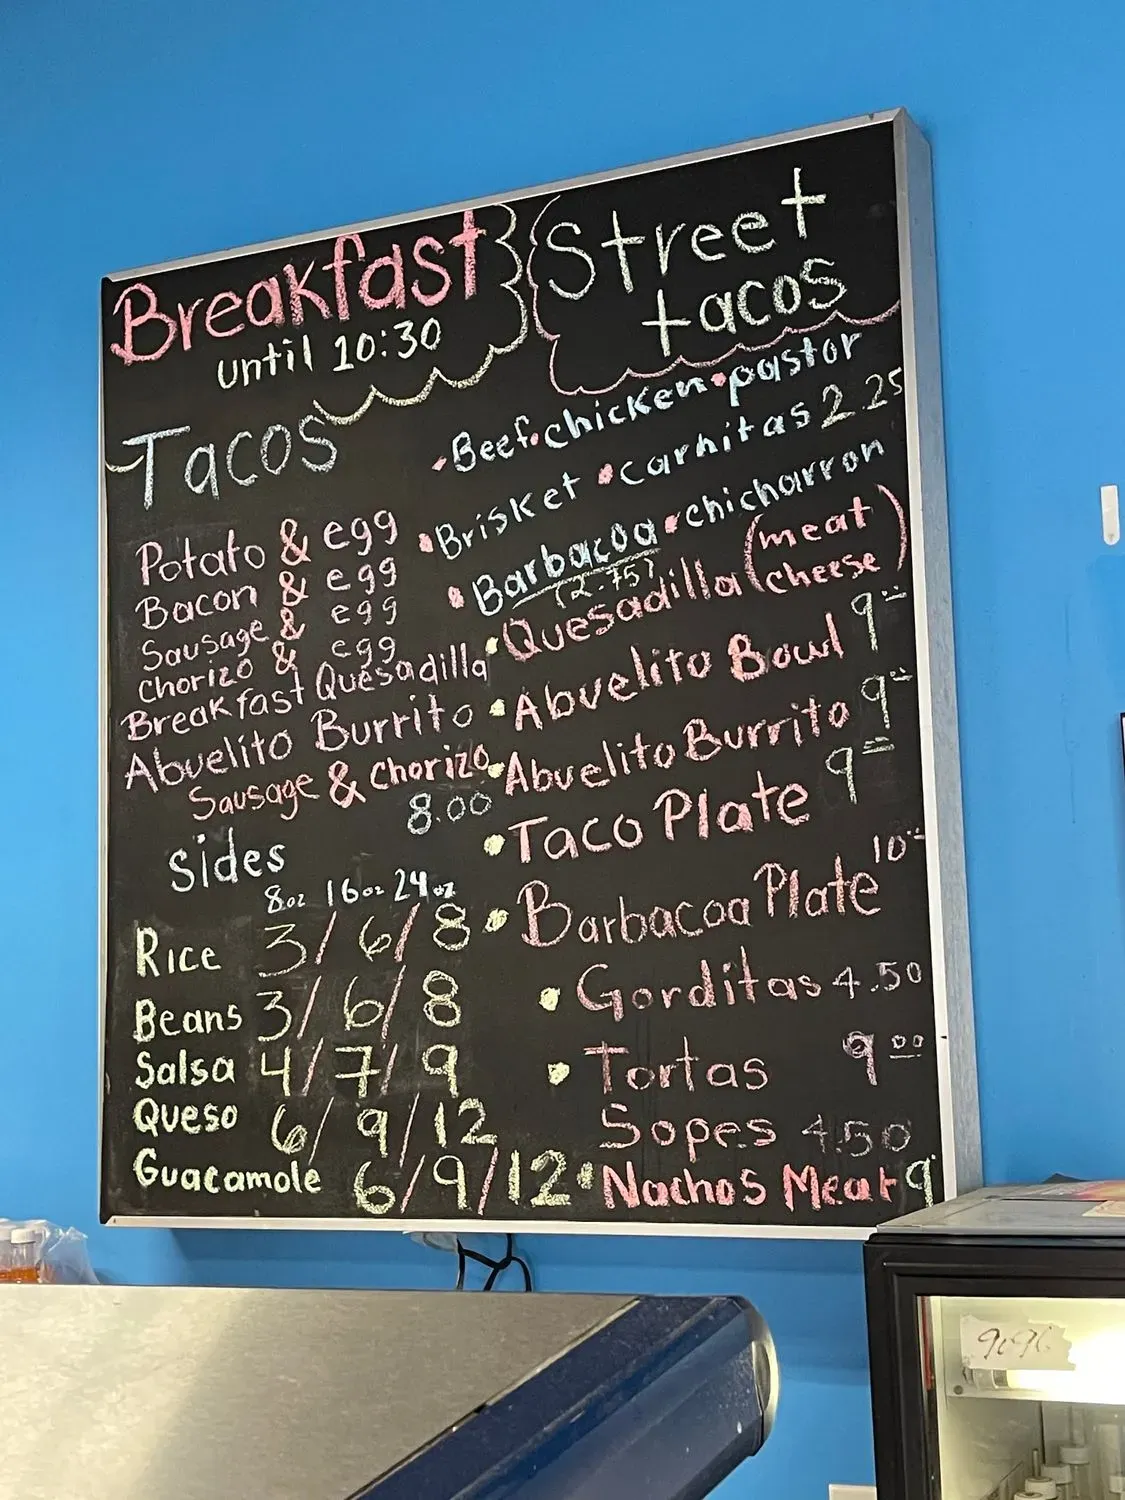 Breakfast
until 10:30
Tacos
Potato & egg
Bacon & egg
Sausage & egg
chorizo & egg
Breakfast Quesadilla
Abuelito Burrito
Sausage & chorizo
8.00
Sides
8oz 16oz 24oz
Rice 3/6/8
Beans 3/6/8
Salsa 4/7/9
Queso 6/9/12
Guacamole 6/9/12
Street
tacos
• Beef • chicken • pastor
• Brisket • carnitas 2.25
• Barbacoa • chicharron
(2.75)
• Quesadilla (meat
cheese)
• Abuelito Bowl 9
• Abuelito Burrito 9
• Taco Plate 9
• Barbacoa Plate 10
• Gorditas 4.50
• Tortas 9.00
Sopes 4.50
• Nachos Meat 9